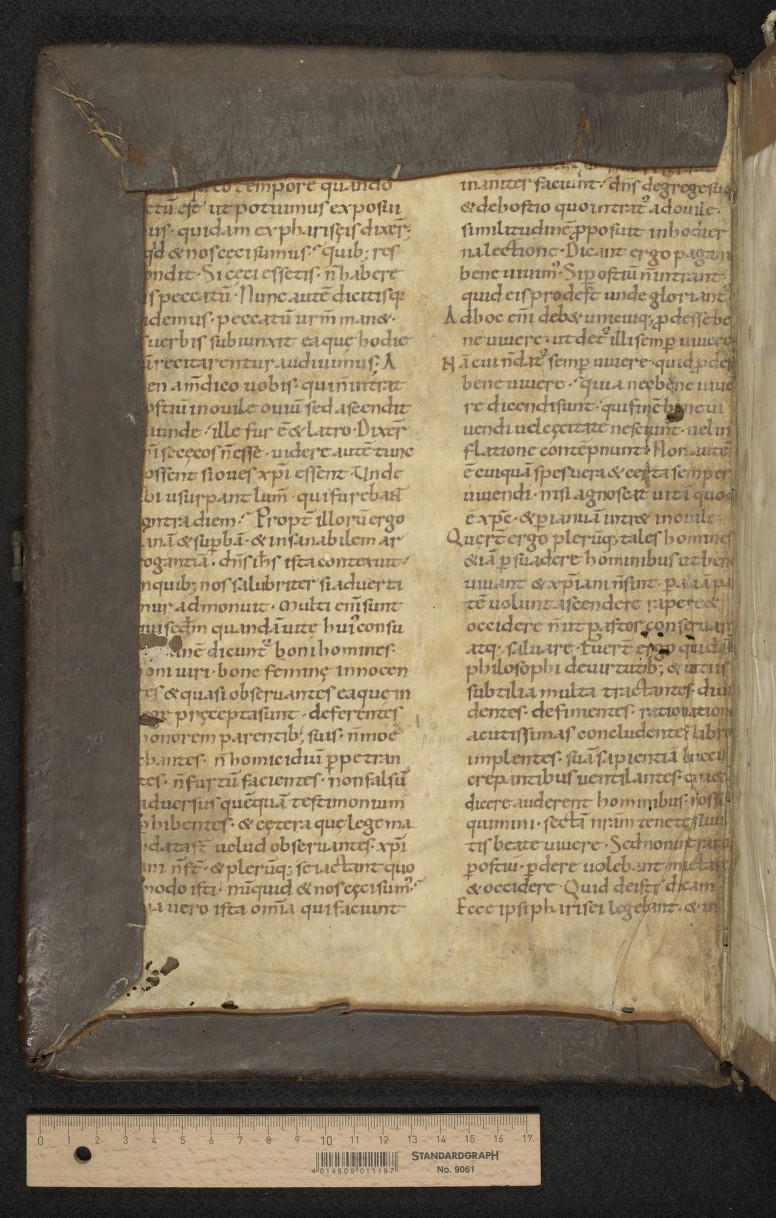 co tempore quando
ctū est ut potuimus exposui
us· quidam ex phariseis dixer̄·
qd̄ & nos ceci sumus· quib; res
ondit· Si ceci essetis· n̄ haber&
is peccatū· Nunc autē dicitis q
idemus· peccatū urm̄ man&·
s uerbis subiunxit ea que hodie
ū recitarentur audiuimus· A
en am̄ dico uobis· qui n̄ intrat
ostiū in ouile ouiū sed ascendit
iunde· ille fur ē & latro· Dixer̄
ī se cecos n̄ esse· uidere autē tunc
ossent si oues xp̄i essent· Unde
bi usurpant lum̄· qui furebant
ontra diem· Propt̄ illorū ergo
anā & sup̄bā· & insanabilem ar
rogantiā· dn̄s ih̄s ista contexuit·
nquib; nos salubriter si aduerti
mur admonuit· Multi eni sunt
qui sc̄dm quandā uite hui consu
inē dicunt boni homines·
boni uiri· bone femine innocen
tes & quasi obseruantes ea que in
lege precepta sunt· deferentes
honorem parentib; suis· n̄ moe
chantes· n̄ homicidiū p̄petran
tes· n̄ furtū facientes· non falsū
aduersus quēquā testimonium
phibentes· & cetera que lege ma
data st̄ uelud obseruantes· xp̄i
ani n̄ st̄· & plerūq; se iactant quo
modo isti· nūquid & nos ceci sum·
ia uero ista om̄ia qui faciunt
inaniter faciunt· dn̄s de grege suo
& de hostio quo intrat ad ouile·
similitudinē p̄posuit in hodier
na lectione· Dicant ergo pagani
bene uiuim· Si p ostiū n̄ intrant·
quid eis prodest unde gloriant
Ad hoc eni deb& unicuiq; p̄desse be
ne uiuere· ut det illi semp̄ uiuere
Nā cui n̄ dat semp̄ uiuere· quid p̄dest
bene uiuere· quia nec bene uiue
re dicendi sunt· qui finē bene ui
uendi uel cecitate nesciunt· uel in
flatione contēpnunt· Non autē
ē cuiquā spes uera & certa semper
uiuendi· nisi agnoscat uitā quod
ē xp̄c· & p ianuā intr& in ouile·
Querr̄t ergo plerūq; tales homines
&iā p̄suadere hominibus ut bene
uiuant & xp̄iani n̄ sint· p aliā par
tē uolunt ascendere rapere &
occidere n̄ ut pastor conseruare
atq; saluare· fuert̄ ergo quidā
philosophi de uirtutib; & uitiis
subtilia multa tractantes· diui
dentes· definientes· ratiotination
acutissimas concludentes· libros
implentes· suā sapientiā buccis
crepantibus uentilantes· qui &
dicere auderent hominibus· nos se
quimini· sectā nrām tenete· si uul
tis beate uiuere· Sed non intrant
p ostiū· p̄dere uolebant mactare
& occidere· Quid de istis dicam
Ecce ipsi pharisei legebant· & in
0 1 2 3 4 5 6 7 8 9 10 11 12 13 14 15 16 17
4 014509 011197
STANDARDGRAPH
No. 9061